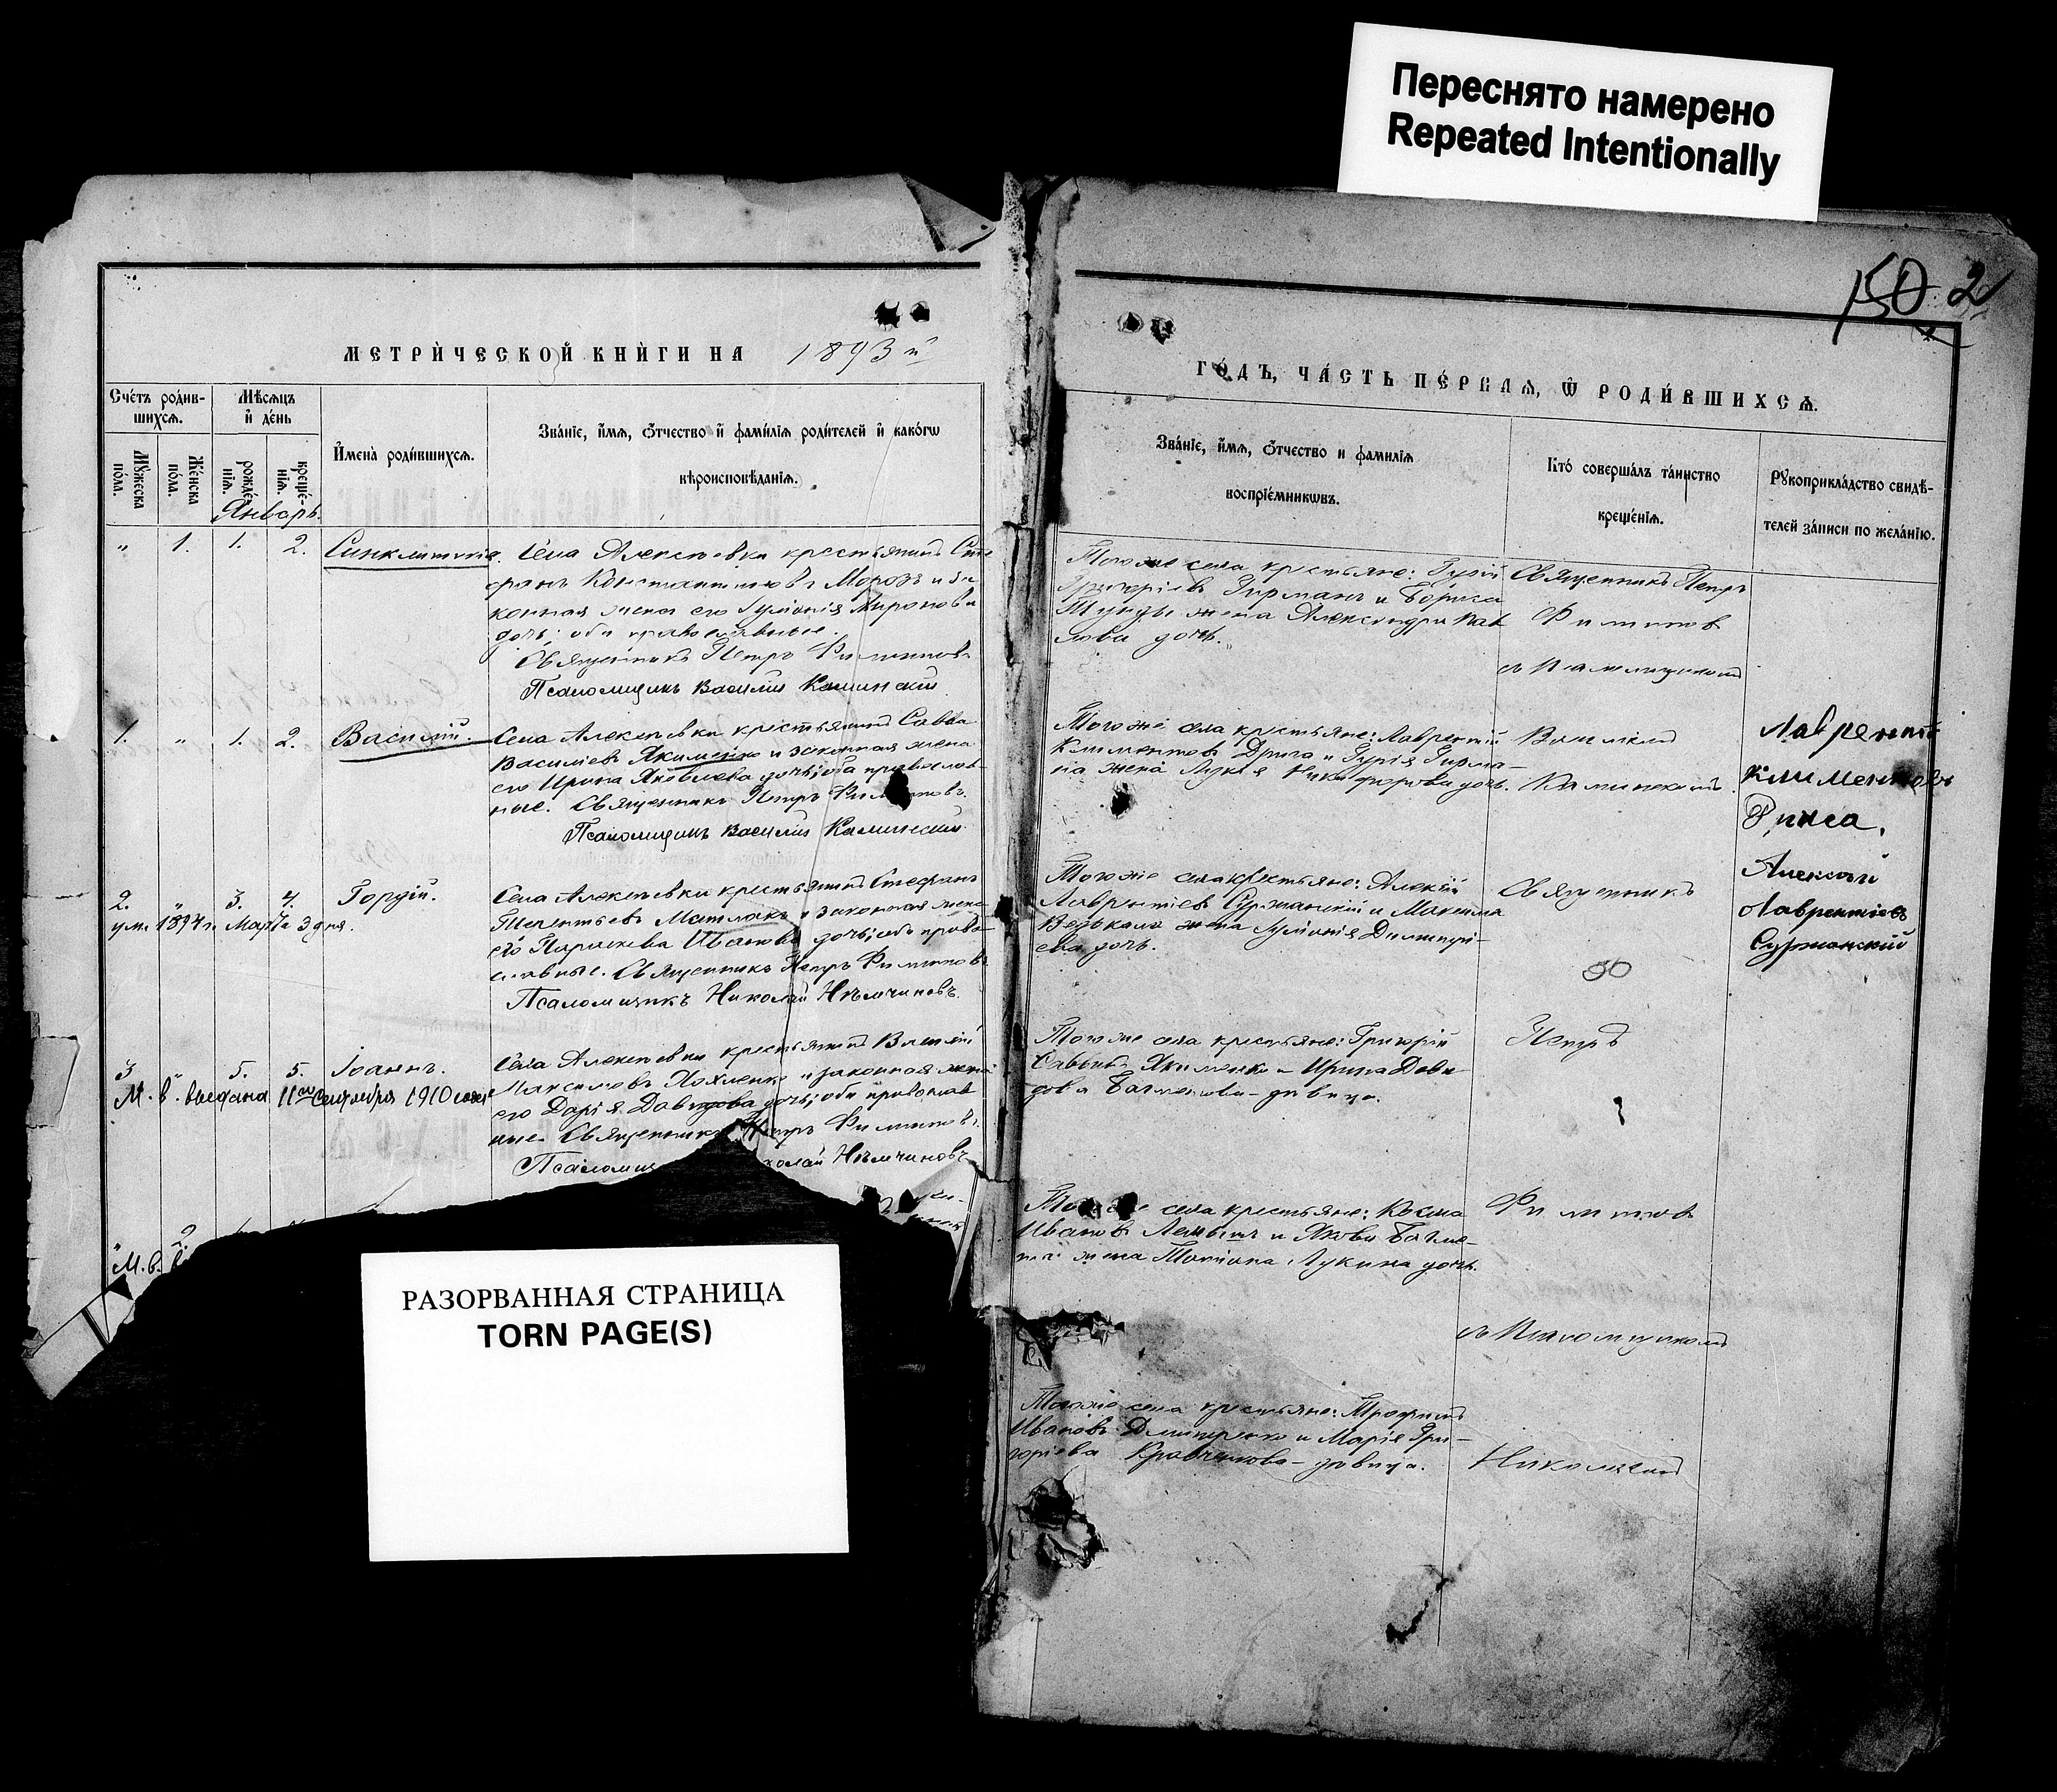 Переснято намерено
Repeated Intentionally
150 2
МЕТРИ́ЧЕСКОЙ КНИ́ГИ НА 1893 й
ГО́ДЪ, ЧА́СТЬ ПЕ́РВАѦ, Ѡ҆ РОДИ́ВШИХСѦ.
Сче́тъ роди́в-
шихсѧ.
Мꙋ́жеска
по́ла.
Же́нска
по́ла.
Мѣ́сѧцъ
и҆ де́нь
рожде́-
нїѧ.
креще́-
нїѧ.
И҆мена̀ роди́вшихсѧ.
Зва́нїе, и҆́мѧ, ѻ҆́тчество и҆ фами́лїѧ роди́телей и҆ како́гѡ
вѣроисповѣ́данїѧ.
Зва́нїе, и҆́мѧ, ѻ҆́тчество и фамилїѧ
воспрїе́мникѡвъ.
Кто́ соверша́лъ та́инство
креще́нїѧ.
Рꙋкоприкла́дство свидѣ́-
телей за́писи по жела́нїю.
Январь.
" 1. 1. 2. Синклитикія.
Села Алексѣевки крестьянинъ Сте
фанъ Константиновъ Морозъ и за
конная жена его Гликерія Миронова
дочь; оба православные.
Священникъ Петръ Филиппов
Псаломщикъ Василій Каминскій
Того же села крестьяне: Гурій
Григоріевъ Гирманъ и Бориса
жена Александра Пав
лова дочь.
Священникъ Петръ
Филиппов
съ Псаломщикомъ
1. " 1. 2. Василій.
Села Алексѣевки крестьянинъ Савва
Василіевъ Якименко и законная жена
его Ирина Яковлева дочь; оба православ-
ные. Священникъ Петръ Филипповъ.
Псаломщикъ Василій Каминскій
Того же села крестьяне: Лаврентій
Климентовъ и Гурія Гирма-
на жена Лукія Никифорова дочь.
Василіем
Каминскимъ.
Лаврентій
Климентовъ
2. " 3. 4. Гордій.
ум. 1894 г. Марта 3 дня.
Села Алексѣевки крестьянинъ Стефанъ
Терентьевъ Матлакъ и законная жена
его Параскева Иванова дочь; оба право-
славные. Священникъ Петръ Филиппов
Псаломщикъ Николай Нѣмчиновъ.
Того же села крестьяне: Алексѣй
Лаврентіевъ Суржанскій и Максима
жена Димитрі-
ева дочь.
Священникъ
50
Алексѣй
Лаврентіевъ
Суржанскій
3 " 5. 5. Іоаннъ.
М. в. выдана 11го Сентября 1910 года
Села Алексѣевки крестьянинъ Василій
Максимовъ Кохленко и законная жена
его Дарія Давидова дочь; оба православ
ные. Священникъ Петръ Филиппов.
Псаломщ колай Нѣмчиновъ
Того же села крестьяне: Григорій
Саввинъ Якименко и Ирина Дави-
дова дѣвица.
Петръ
2.
М. в.
Того же села крестьяне: Косма
Иванов и Якова
жена Татіана Лукина дочь.
Филиппов
съ Псаломщикомъ
Того же села крестьяне: Трофимъ
Ивановъ Дмитренко и Марія Гри-
горіева Кравченкова - дѣвица.
Николаемъ
РАЗОРВАННАЯ СТРАНИЦА
TORN PAGE(S)